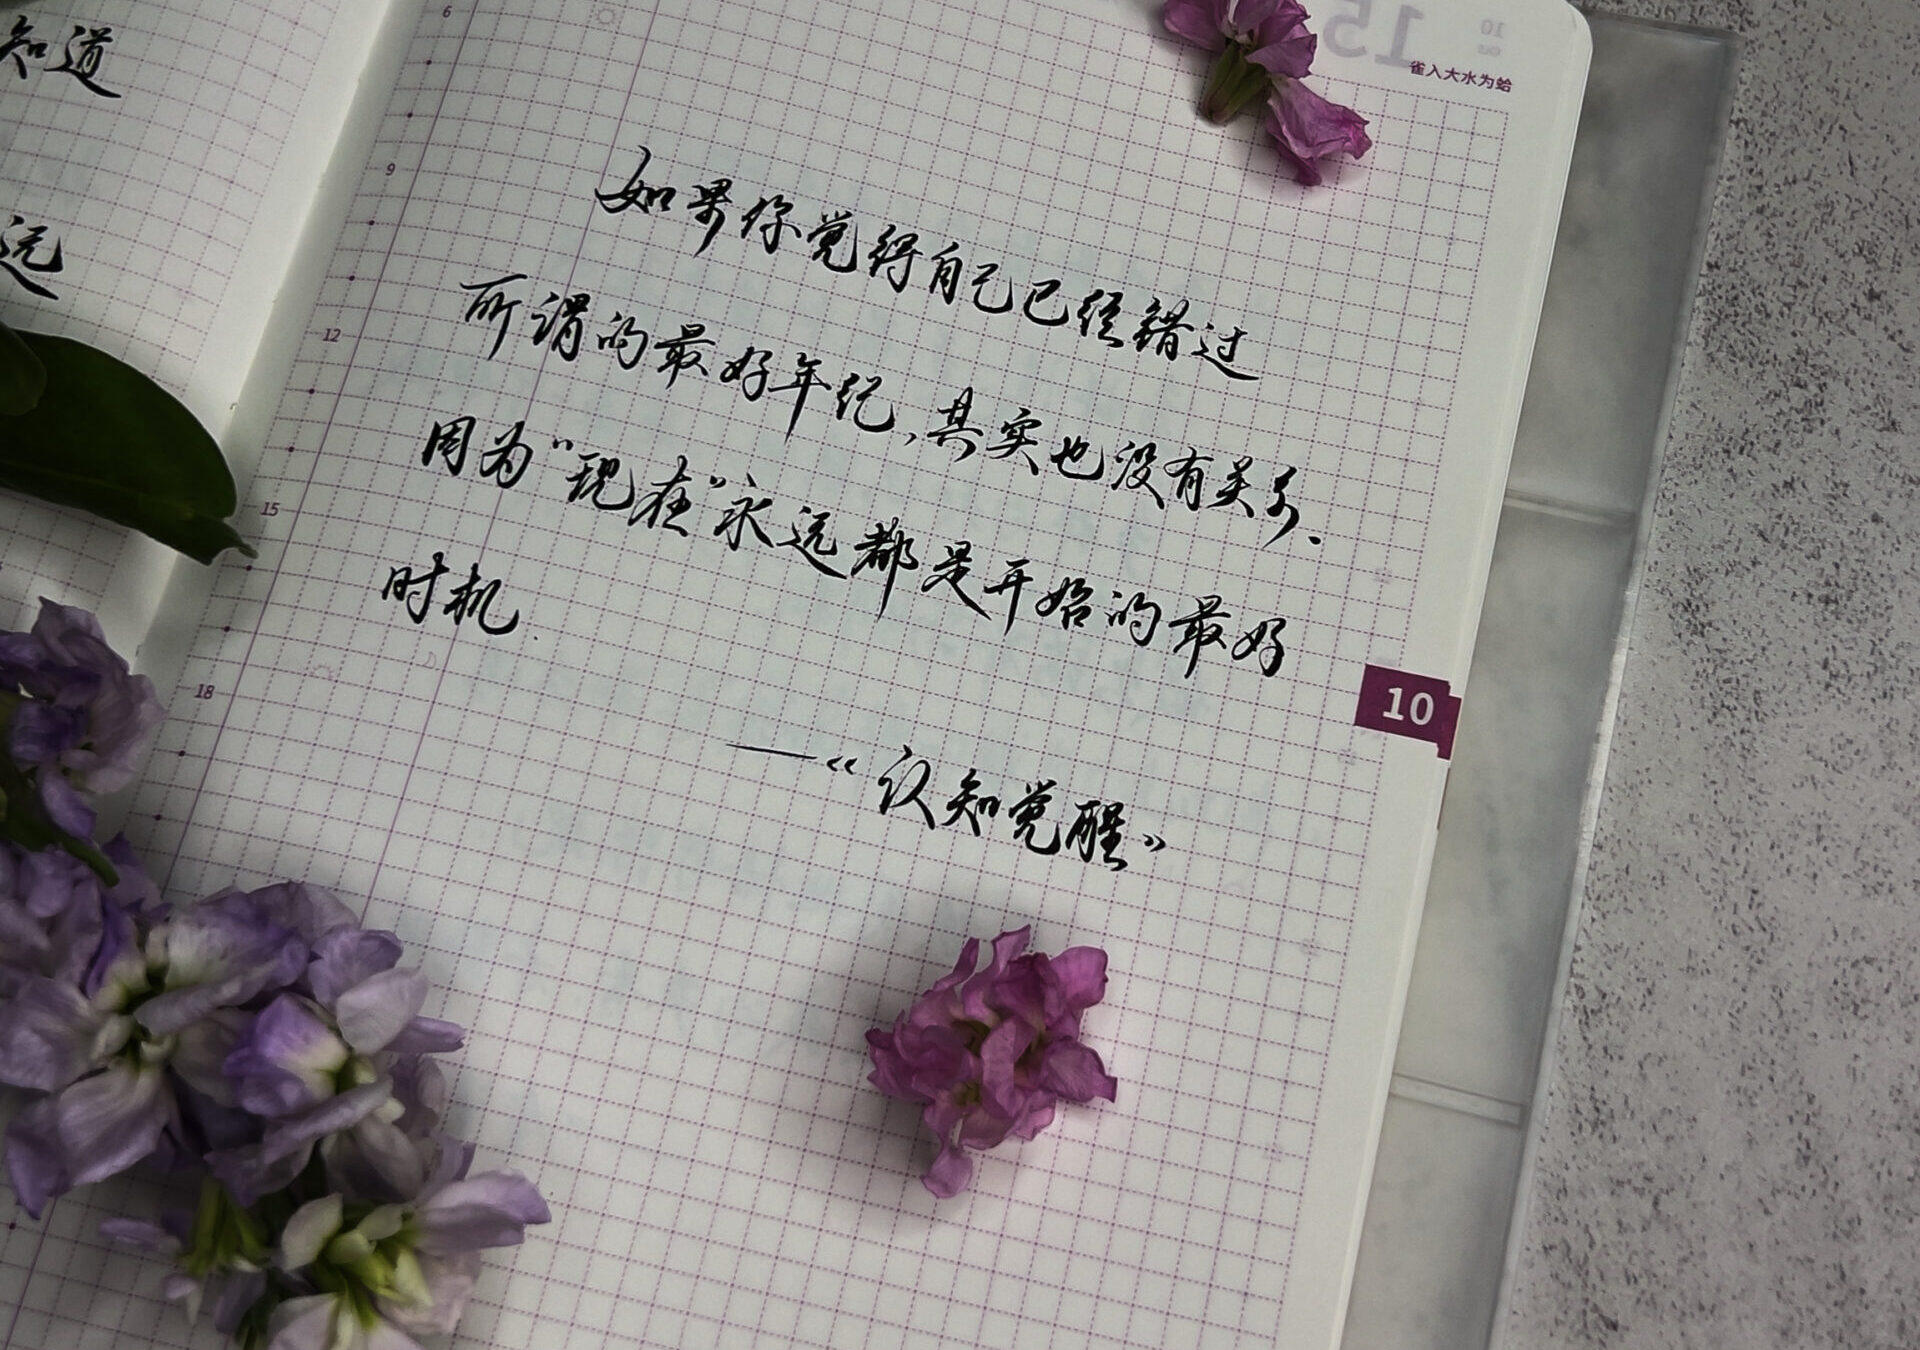 知道
远
6
9
12
15
18
15
10
雀入大水为蛤
如果你觉得自己已经错过
所谓的最好年纪,其实也没有关系.
因为“现在”永远都是开始的最好
时机.
—《认知觉醒》
10